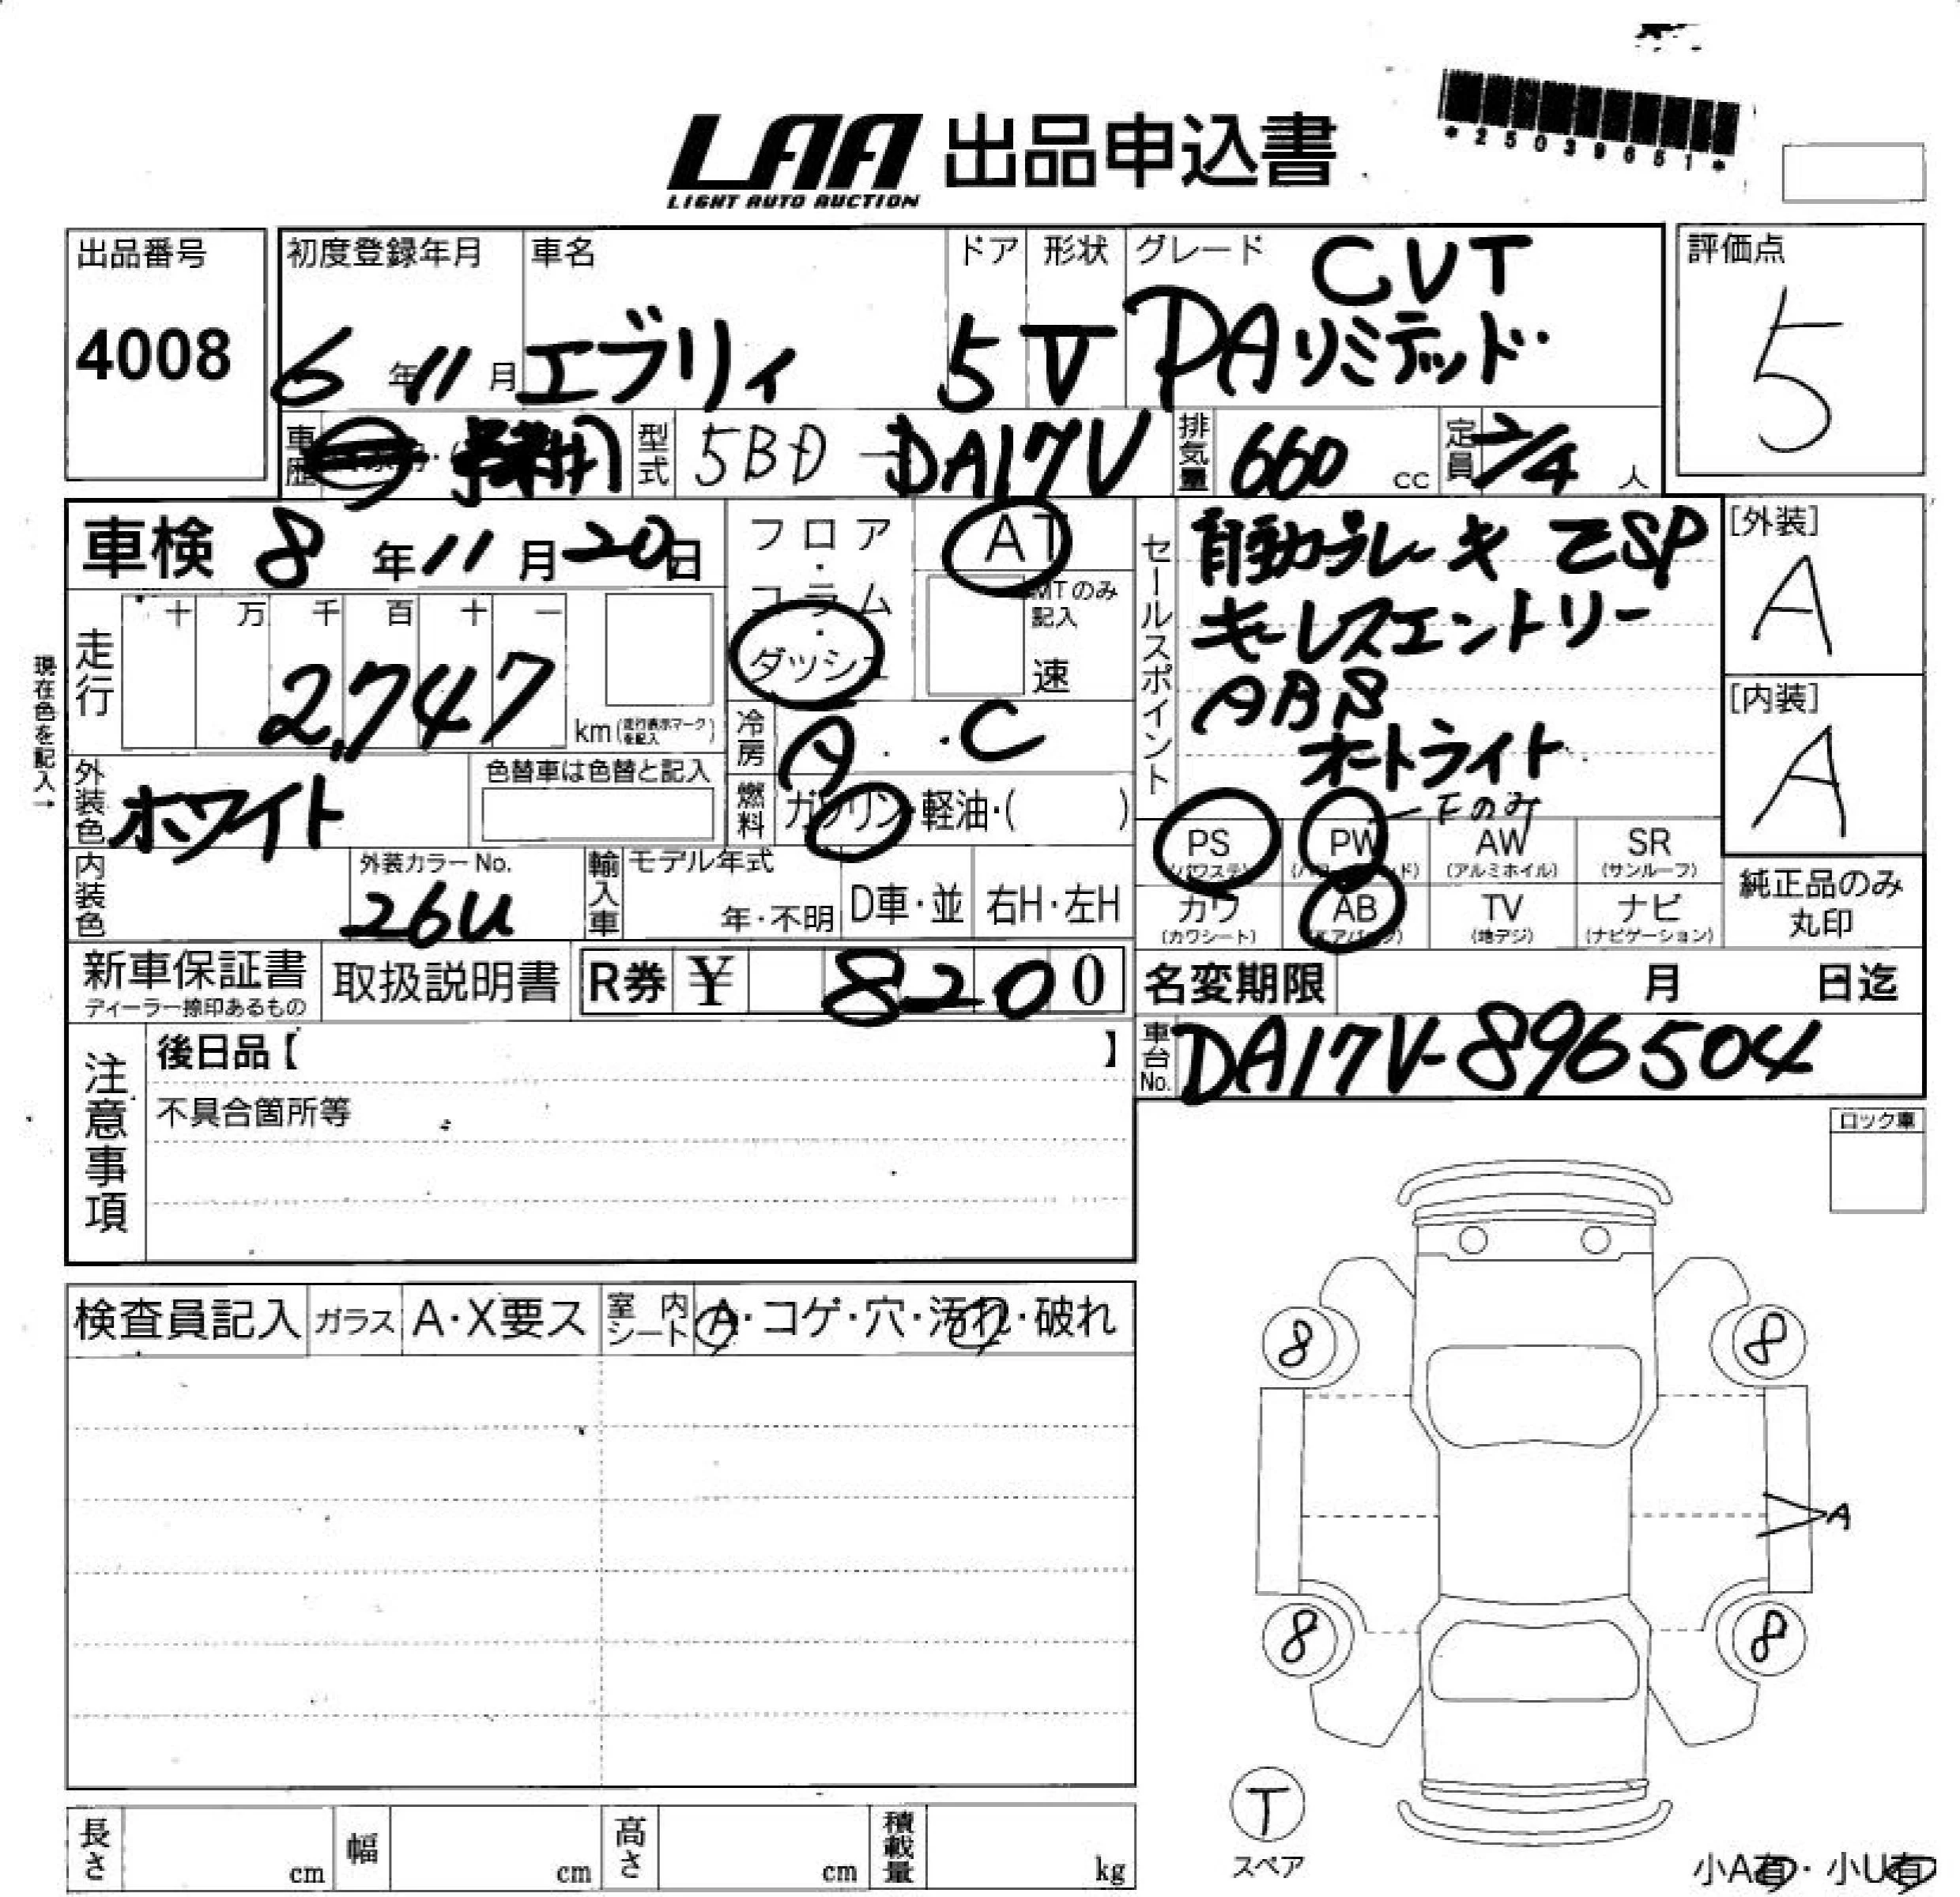 *25039651*
LAA 出品申込書
LIGHT AUTO AUCTION
出品番号
4008
初度登録年月
6年11月
車名
エブリィ
ドア
5
形状
V
グレード
CVT
PAリミテッド
評価点
5
車歴
型式
5BD-DA17V
排気量
660 cc
定員
2/4 人
車検 8年11月20日
フロア・コラム・ダッシュ
AT
MTのみ記入
速
セールスポイント
自動ブレーキ ESP
キーレスエントリー
ABS
オートライト
[外装]
A
[内装]
A
現在色を記入→
走行
十 万 千 百 十 一
2,747
km(走行表示マークを記入)
冷房
A・C
外装色
ホワイト
色替車は色替と記入
燃料
ガソリン・軽油・( )
Fのみ
PS (パワステ)
PW
AW (アルミホイル)
SR (サンルーフ)
カワ (カワシート)
AB (エアバッグ)
TV (地デジ)
ナビ (ナビゲーション)
純正品のみ
丸印
内装色
外装カラーNo.
26U
輸入車
モデル年式
年・不明
D車・並
右H・左H
新車保証書
ディーラー捺印あるもの
取扱説明書
R券 ¥ 8200
名変期限 月 日迄
車台No.
DA17V-896504
注意事項
後日品【 】
不具合箇所等
ロック車
検査員記入
ガラス
A・X要ス
室内シート
A・コゲ・穴・汚れ・破れ
8
8
A
8
8
T
スペア
長さ cm
幅 cm
高さ cm
積載量 kg
小A有・小U有